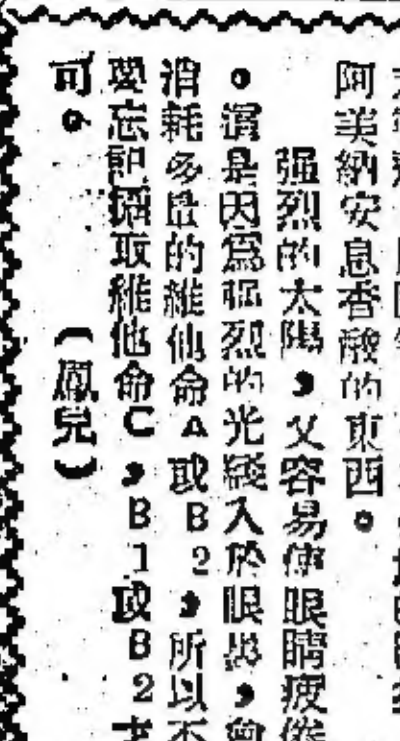 阿美納安息香酸的東西。
强烈的太陽，又容易使眼睛疲倦
。這是因為强烈的光綫入於眼與，會
消耗多量的維他命A或B2，所以不
要忘記攝取維他命C，B1或B2才
可。（鳳兒）